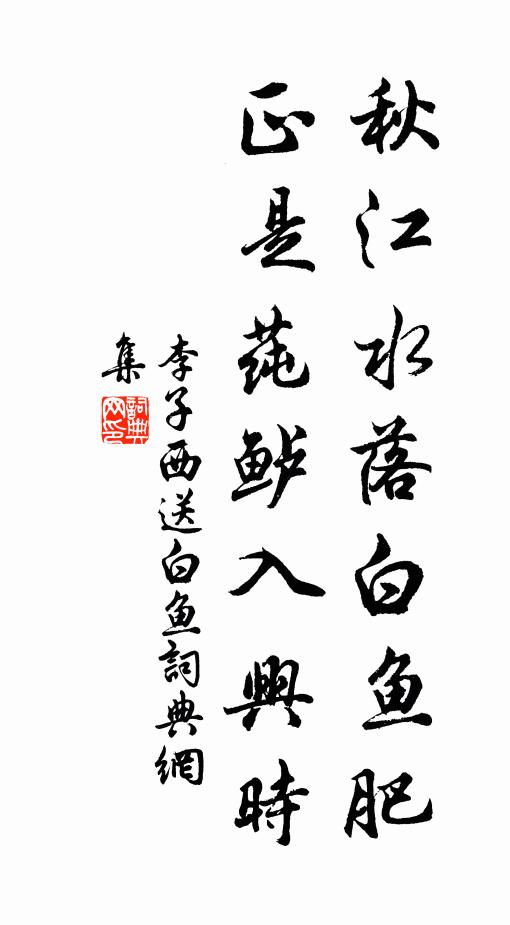 秋江水落白鱼肥
正是莼鲈入興時
李子西送白鱼詞典網
集
詞典
网印